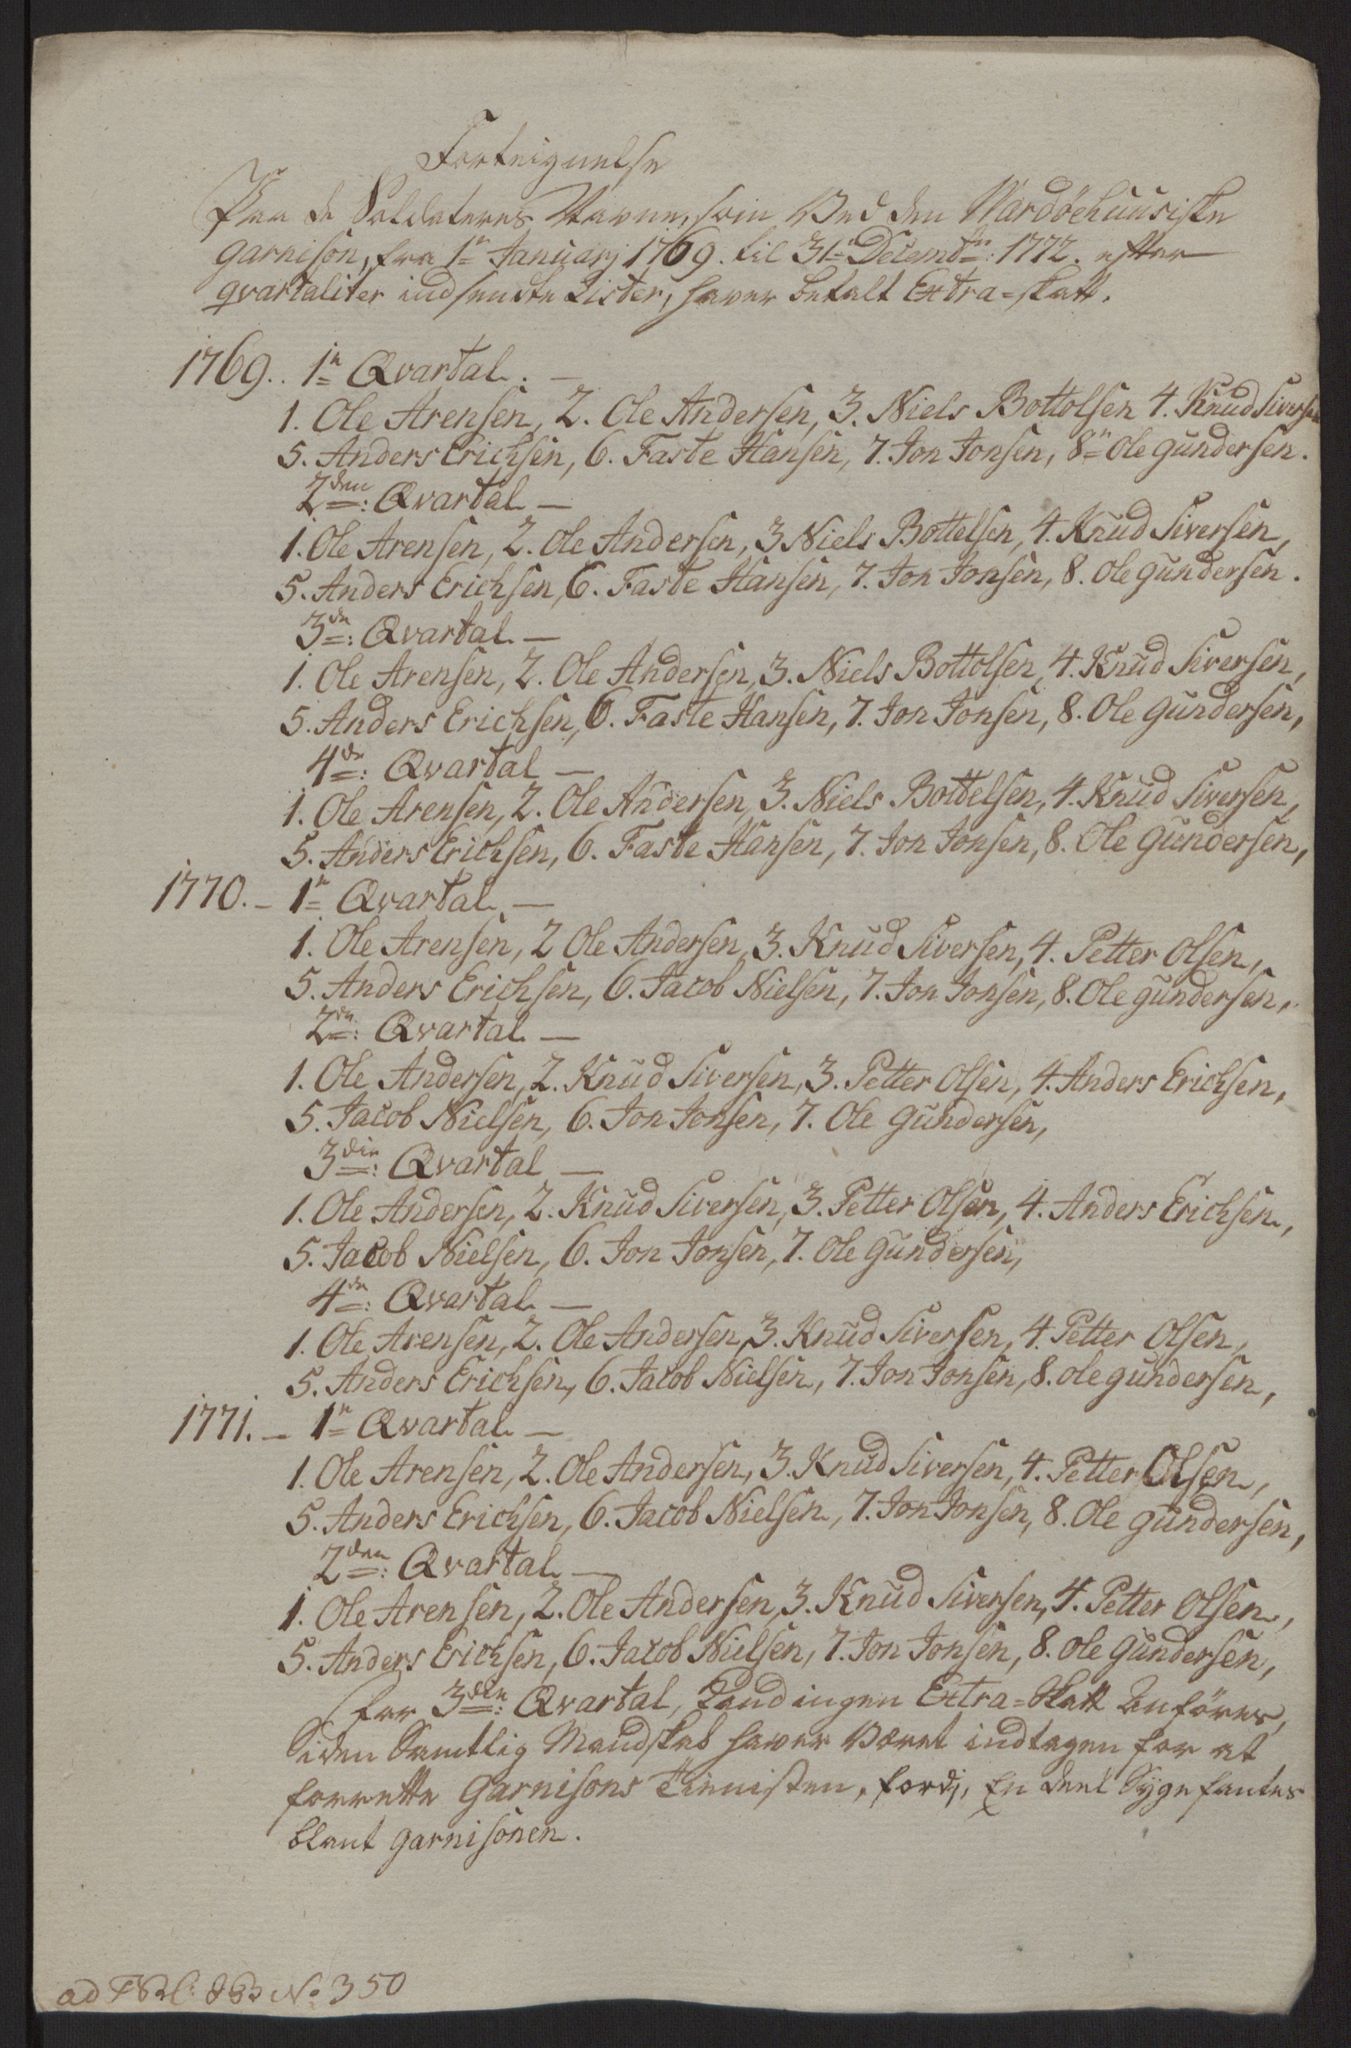 Forteignelse
Paa de Soldaters Navne, som Ved den Wardöehuusiske
garnison, fra 1n Januarj 1769. til 31n Decembr: 1772. efter
qvartaliter indsendte Lister, haver betalt Extra-skatt.
1769.. 1n Qvartal. —
1. Ole Arensen, 2. Ole Andersen, 3. Niels Bottolsen 4. Knud Siversen
5. Anders Erichsen, 6. Faste Hansen, 7. Jon Jonsen, 8n Ole gundersen.
2den: Qvartal —
1. Ole Arensen, 2. Ole Andersen, 3 Niels Bottelsen, 4. Knud Siversen,
5. Anders Erichsen, 6. Faste Hansen, 7. Jon Jonsen, 8. Ole gundersen.
3de: Qvartal —
1. Ole Arensen, 2. Ole Andersen, 3. Niels Bottolsen, 4. Knud Siversen,
5. Anders Erichsen, 6. Faste Hansen, 7. Jon Jonsen, 8. Ole gundersen,
4de: Qvartal —
1. Ole Arensen, 2. Ole Andersen, 3. Niels Bottelsen, 4. Knud Siversen,
5. Anders Erichsen, 6. Faste Hansen, 7. Jon Jonsen, 8. Ole gundersen,
1770. – 1n Qvartal —
1. Ole Arensen, 2 Ole Andersen, 3. Knud Siversen, 4. Petter Olsen,
5. Anders Erichsen, 6. Jacob Nielsen, 7. Jon Jonsen, 8. Ole gundersen,
2den: Qvartal —
1. Ole Andersen, 2. Knud Siversen, 3. Petter Olsen, 4. Anders Erichsen,
5. Jacob Nielsen, 6. Jon Jonsen, 7. Ole gundersen,
3die: Qvartal —
1. Ole Andersen, 2. Knud Siversen, 3. Petter Olsen, 4. Anders Erichsen,
5. Jacob Nielsen, 6. Jon Jonsen, 7. Ole gundersen,
4de: Qvartal —
1. Ole Arensen, 2. Ole Andersen, 3. Knud Siversen, 4. Petter Olsen,
5. Anders Erichsen, 6. Jacob Nielsen, 7. Jon Jonsen, 8. ole gundersen,
1771. – 1n Qvartal —
1. Ole Arensen, 2. Ole Andersen, 3. Knud Siversen, 4. Petter Olsen,
5. Anders Erichsen, 6. Jacob Nielsen, 7. Jon Jonsen, 8. Ole gundersen,
2den: Qvartal —
1. Ole Arensen, 2. Ole Andersen, 3. Knud Siversen, 4. Petter Olsen,
5. Anders Erichsen, 6. Jacob Nielsen, 7. Jon Jonsen, 8. Ole gundersen,
for 3die: Qvartal, ingen Extra-Skatt
Siden Samtlig Mandskab haver været indtagen for at
forrette Garnisons Tienisten, fordj, En deel Syge fantes
blant garnisonen.
ad No 350